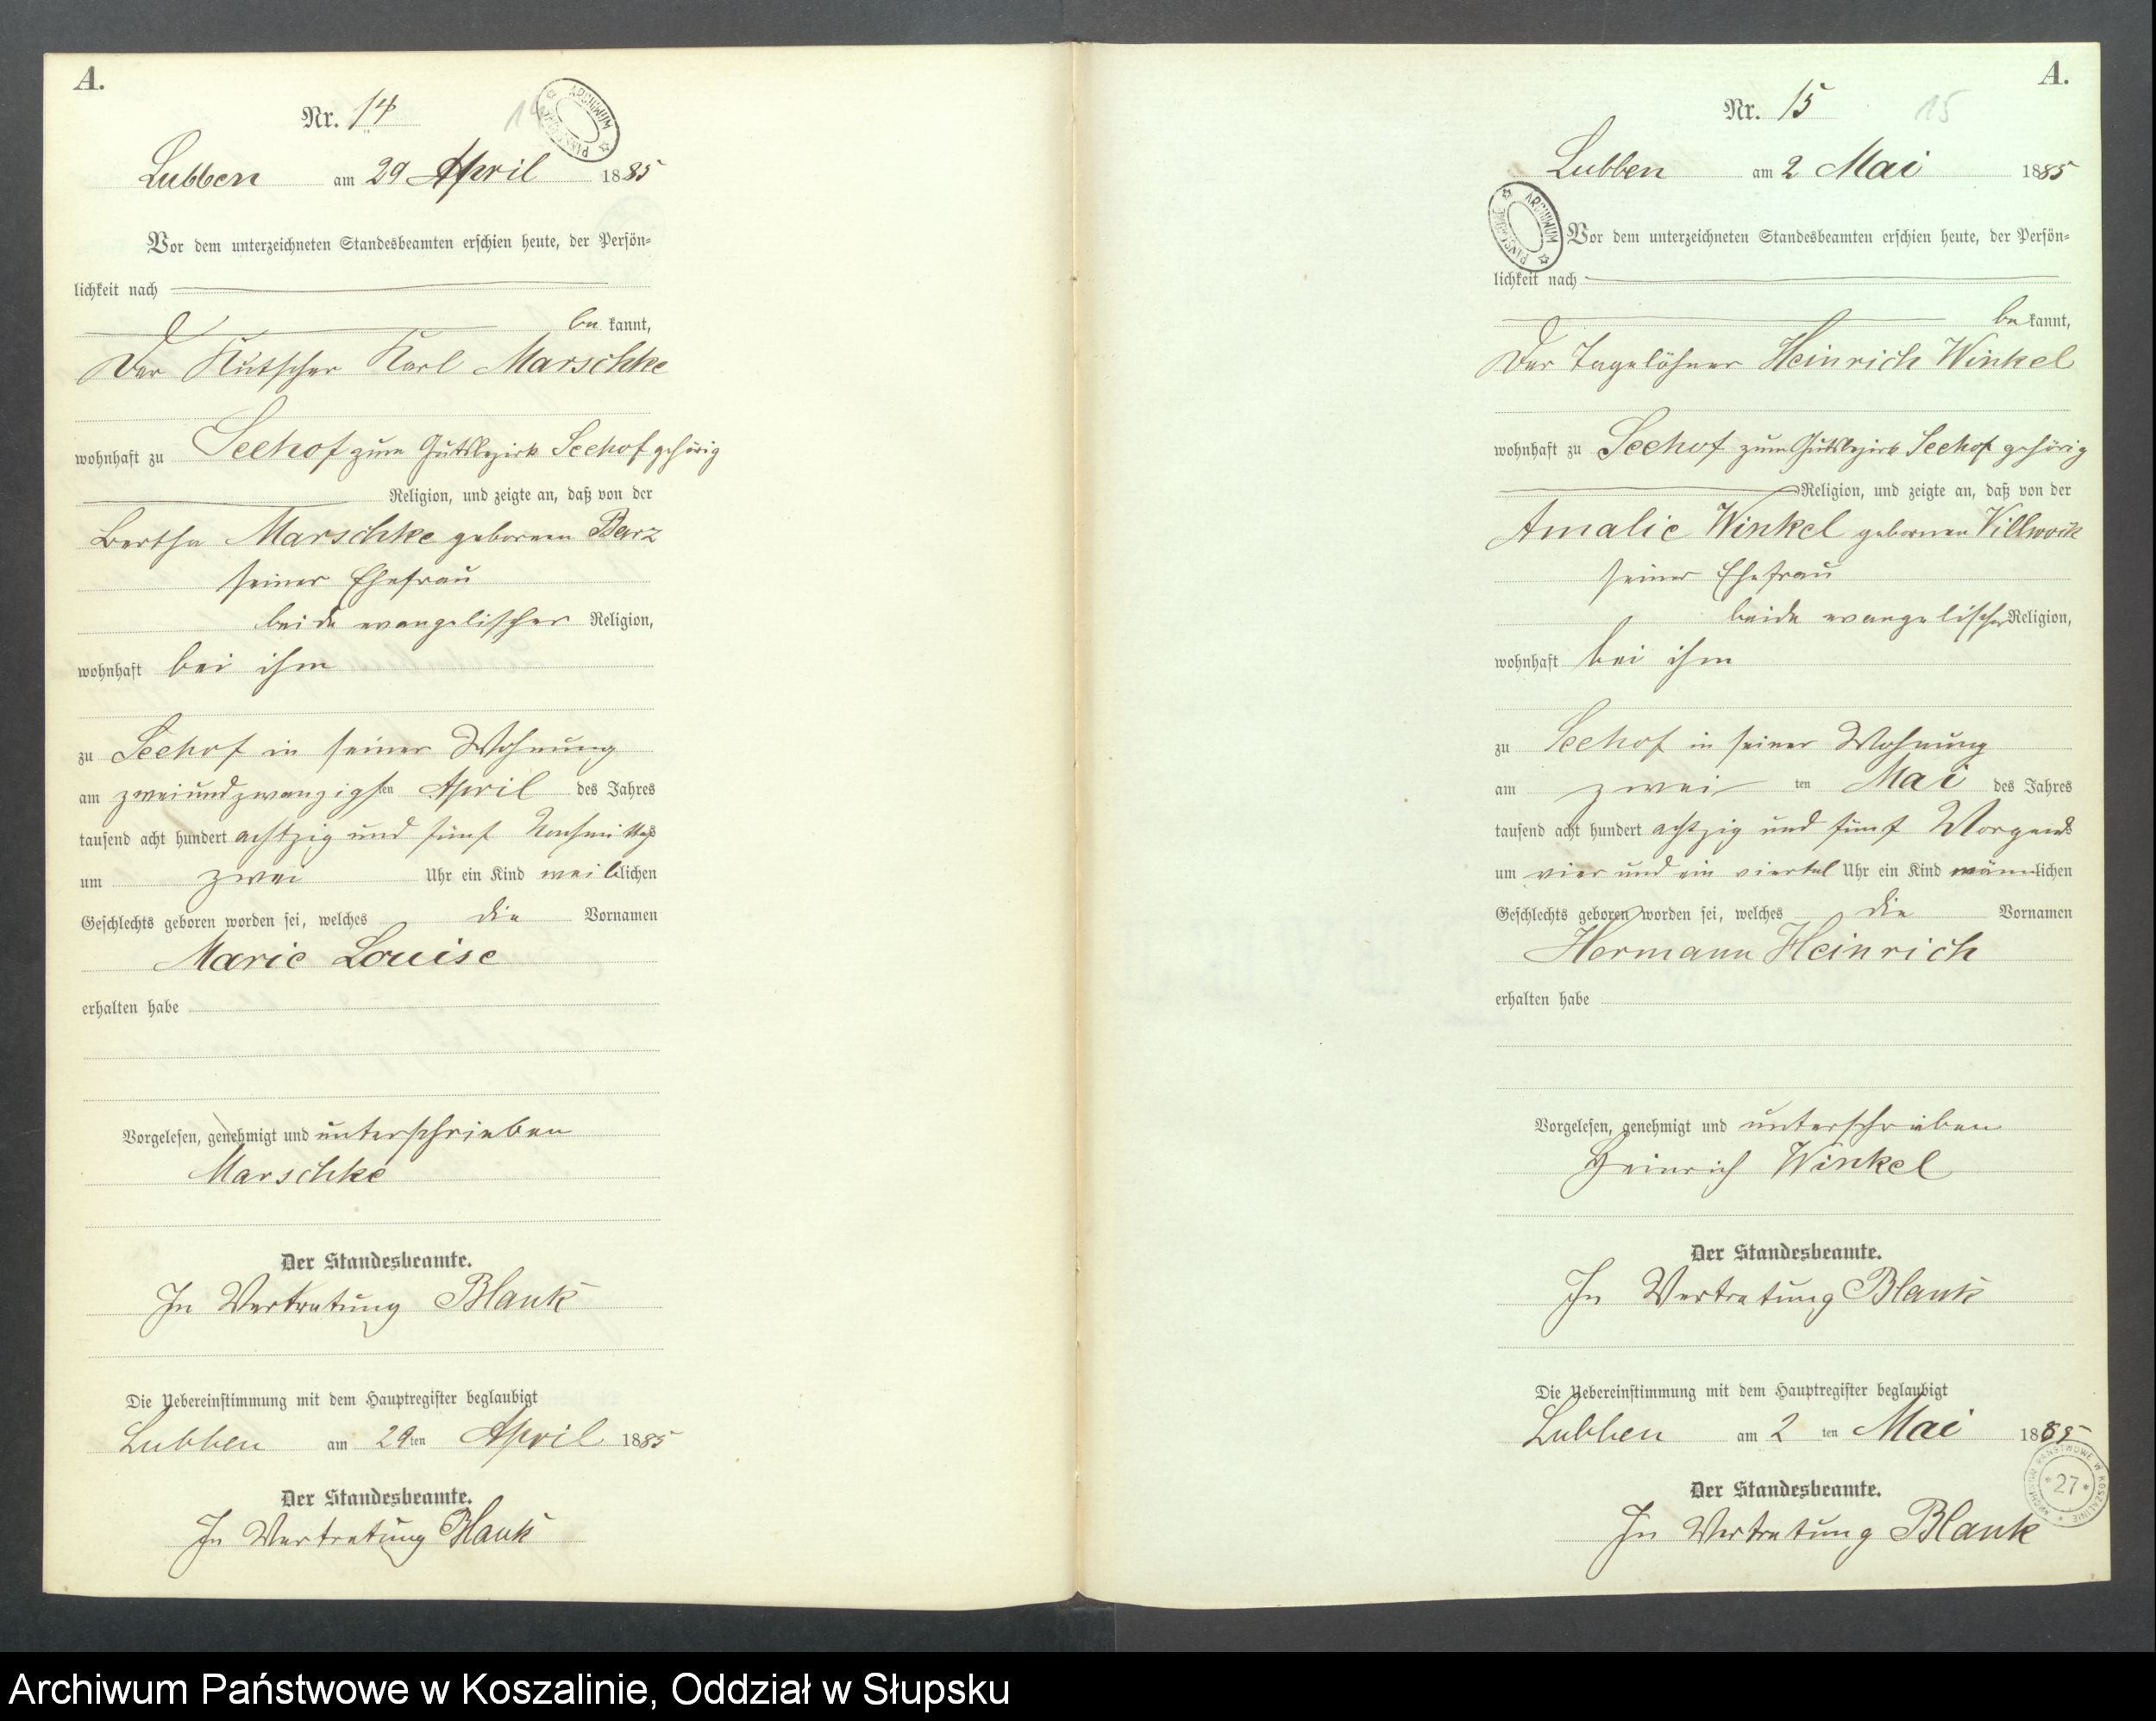 A.
Nr. 14
14
ARCHIWUM PAŃSTWOWE
Lubben am 29 April 1885
Vor dem unterzeichneten Standesbeamten erschien heute, der Persön-
lichkeit nach
be kannt,
Der Kutscher Karl Marschke
wohnhaft zu Seehof zum Gutsbezirk Seehof gehörig
Religion, und zeigte an, daß von der
Bertha Marschke geborenen Barz
seiner Ehefrau
beide evangelischer Religion,
wohnhaft bei ihm
zu Seehof in seiner Wohnung
am zweiundzwanzigsten April des Jahres
tausend acht hundert achtzig und fünf Nachmittags
um zwei Uhr ein Kind weiblichen
Geschlechts geboren worden sei, welches die Vornamen
Marie Louise
erhalten habe
Vorgelesen, genehmigt und unterschrieben
Marschke
Der Standesbeamte.
In Vertretung Blank
Die Uebereinstimmung mit dem Hauptregister beglaubigt
Lubben am 29ten April 1885
Der Standesbeamte.
In Vertretung Blank
A.
Nr. 15
15
Lubben am 2 Mai 1885
ARCHIWUM PAŃSTWOWE
Vor dem unterzeichneten Standesbeamten erschien heute, der Persön-
lichkeit nach
be kannt,
Der Tagelöhner Heinrich Winkel
wohnhaft zu Seehof zum Gutsbezirk Seehof gehörig
Religion, und zeigte an, daß von der
Amalie Winkel gebornen Villwock
seiner Ehefrau
beide evangelischer Religion,
wohnhaft bei ihm
zu Seehof in seiner Wohnung
am zwei ten Mai des Jahres
tausend acht hundert achtzig und fünf Morgens
um vier und ein viertel Uhr ein Kind männlichen
Geschlechts geboren worden sei, welches die Vornamen
Hermann Heinrich
erhalten habe
Vorgelesen, genehmigt und unterschrieben
Heinrich Winkel
Der Standesbeamte.
In Vertretung Blank
Die Uebereinstimmung mit dem Hauptregister beglaubigt
Lubben am 2 ten Mai 1885
Der Standesbeamte.
In Vertretung Blank
ARCHIWUM PAŃSTWOWE W KOSZALINIE
* 27 *
Archiwum Państwowe w Koszalinie, Oddział w Słupsku